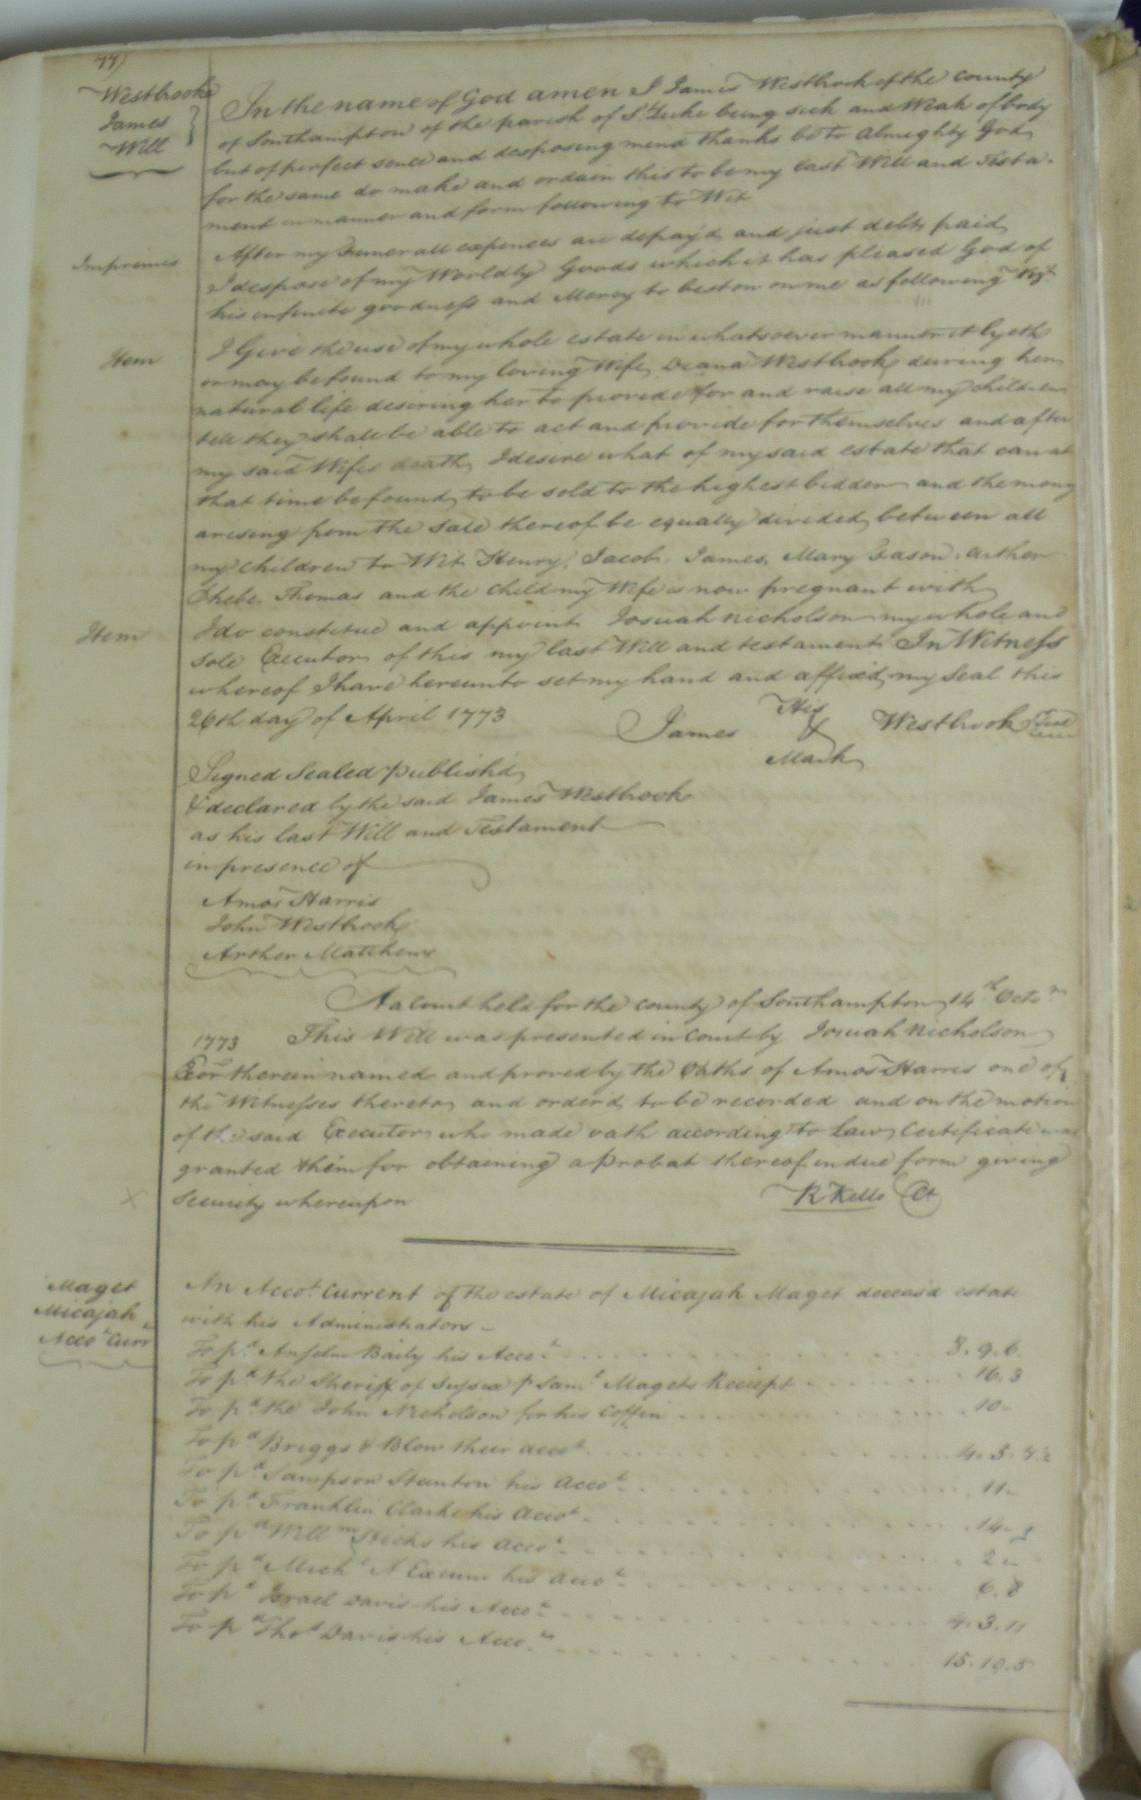 77)
Westbrooke
James
Will
In the name of God amen I James Westbrook of the County
of Southampton of the parish of St Luke being sick and Weak of body
but of perfect sence and desposing mend thanks be to almighty God
for the same do make and ordain this to be my last Will and Testa-
ment in manner and form following to Wit
Impremes
After my Funerall expences are defray'd and just debts paid
I despose of my Worldly Goods which it has pleased God of
his infinite goodness and Mercy to bestow on me as following
Item
I Give the use of my whole estate in whatsoever manner it lyeth
or may be found to my loving Wife Diana Westbrook during her
natural life desiring her to provide for and raise all my children
till they shall be able to act and provide for themselves and after
my said Wifes death I desire what of my said estate that can at
that time be found to be sold to the highest bidder and the mony
arising from the sale thereof be equally divided between all
my children to Wit Henry, Jacob, James, Mary Eason, Arther
Phebe, Thomas and the Child my Wife is now pregnant with
Item
I do constitue and appoint Josuah Nicholson my whole and
sole Executor of this my last Will and testament In Witness
whereof I have hereunto set my hand and affixd my Seal this
26th day of April 1773
His
James
Westbrook Seal
Mark
Signed Sealed Publish'd
& declared by the said James Westbrook
as his last Will and Testament
in presence of
Amos Harris
John Westbrook
Arther Matthews
Aa Court held for the county of Southampton 14th Octo
1773 This Will was presented in Court by Josuah Nicholson
Exor therein named and proved by the Oaths of Amos Harris one of
the Witnesses thereto and orderd to be recorded and on the motion
of the said Executor who made oath according to Law Certificate was
granted him for obtaining a Probat thereof in due form giving
Security whereupon
R Kello Ct
Maget
Micajah
Acco.t Curr
An Acco.t Current of the estate of Micajah Maget deceasd estate
with his Administrators -
To p.d Anselm Baily his Acco.t 8.9.6
To p.d the Sheriff of Sussex p Sam.l Magets Reciept 16.3
To p.d the John Nicholson for his Coffin 10-
To p.d Briggs & Blow their acco.t 4.3.7½
To p.d Sampson Stanton his acco.t 11-
To p.d Franklin Clarke his Acco.t 14-
To p.d Will.m Hicks his Acco.t 2
To p.d Mich.l A Exum his acco.t 6.8
To p.d Israel Davis his Acco.t 4.3.11
To p.d Tho.s Davis his Acco.t 15.19.5